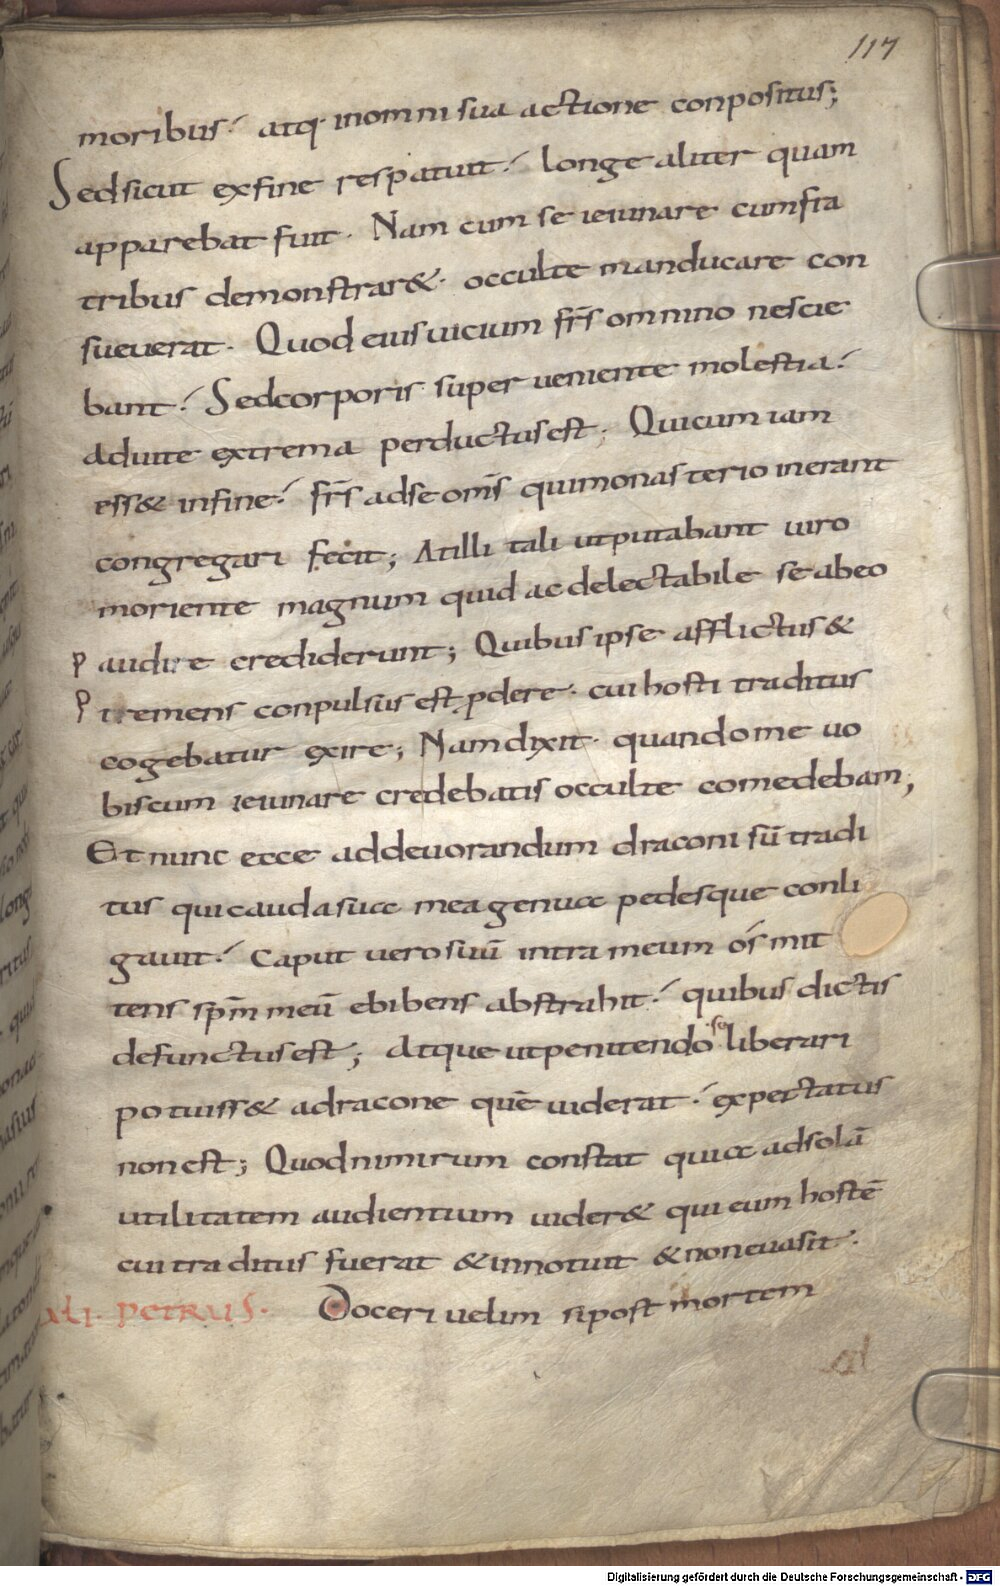 117
moribus! atq· inomni sua actione conpositus;
Sed sicut ex fine respatuit! longe aliter quam
apparebat fuit· Nam cum se ieiunare cum fra
tribus demonstrar&· occulte manducare con
sueuerat· Quod eius uicium frs̄ omnino nescie
bant! Sed corporis super ueniente molestia!
ad uite extrema perductus est; Qui cum iam
ess& in fine! frs̄ ad se om̄s qui monasterio inerant
congregari fecit; At illi tali ut putabant uiro
moriente magnum quid ac delectabile se ab eo
audire crediderunt; Quibus ipse afflictus &
tremens conpulsus est ꝓdere· cui hosti traditus
cogebatur exire; Nam dixit· quando me uo
biscum ieiunare credebatis occulte comedebam;
Et nunc ecce ad deuorandum draconi sū tradi
tus qui cauda sua mea genua pedesque conli
gauit! Caput uero suū intra meum ós mit
tens spm̄ meū ebibens abstrahit! quibus dictis
defunctus est; Atque ut penitendo se liberari
potuiss& a dracone quē uiderat! expectatus
non est; Quod nimirum constat quia ad solā
utilitatem audientium uider& qui eum hostē
cui traditus fuerat & innotuit & non euasit·
xli· PETRUS· Doceri uelim si post mortem
Digitalisierung gefördert durch die Deutsche Forschungsgemeinschaft - DFG